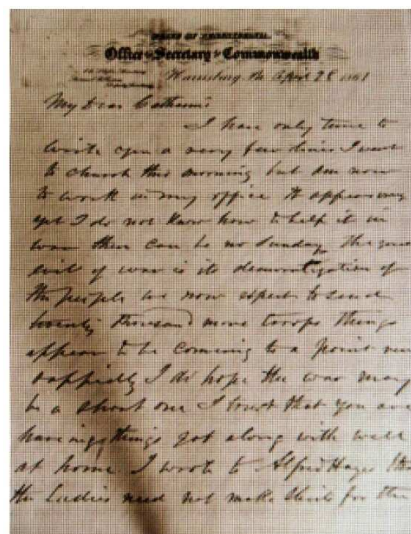 STATE OF PENNSYLVANIA.
Office Secretary Commonwealth
Harrisburg Pa April 28 1861
My Dear Catharine
I have only time to
write you a very few lines I went
to church this morning but am now
to work in my office It appears wrong
yet I do not know how to help it in
war there can be no Sunday The great
evil of war is its demoralization of
the people we now expect to send
twenty thousand more troops things
appear to be coming to a point very
rapidly I do hope the war may
be a short one I trust that you are
having things get along with well
at home. I wrote to Alfred Hayes
the Ladies need not make shirts for the